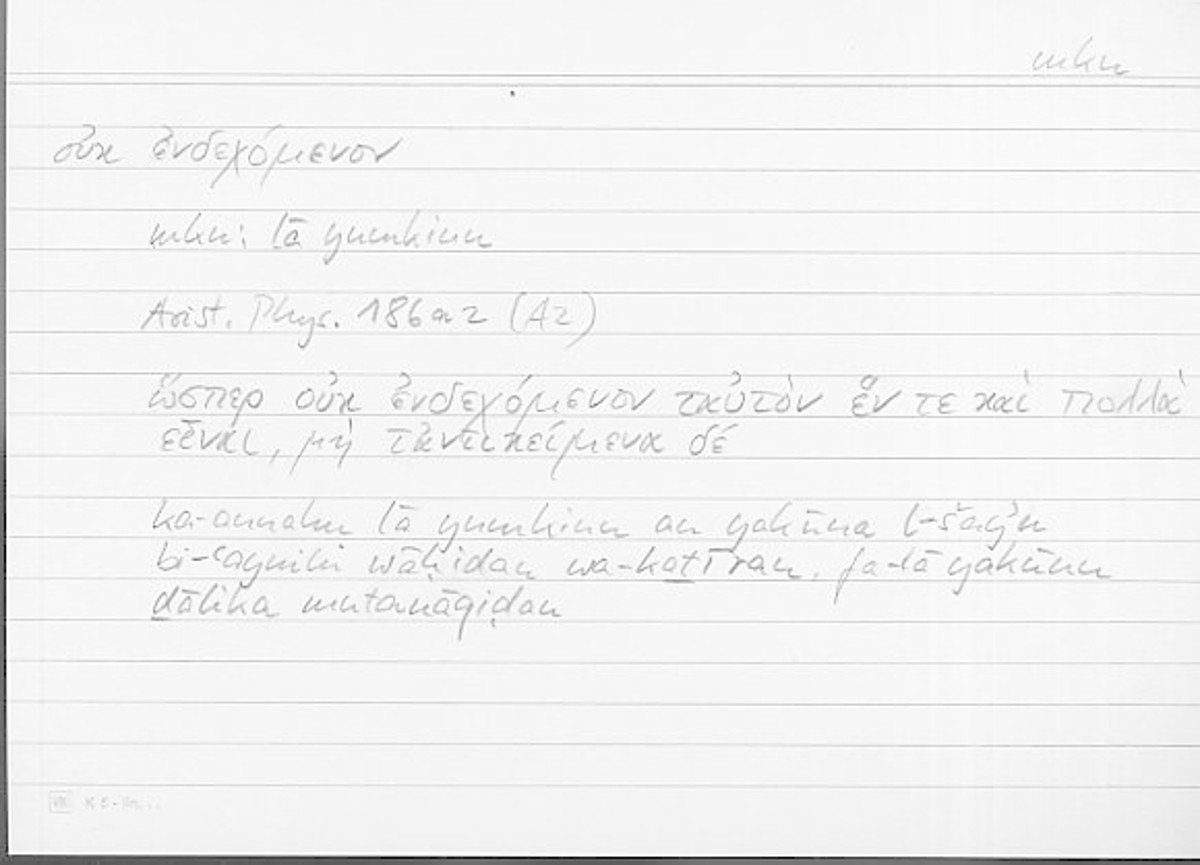 mkn
οὐκ ἐνδεχόμενον
mkn: lā yumkinu
Arist. Phys. 186a2 (A2)
ὥσπερ οὐκ ἐνδεχόμενον ταὐτὸν ἕν τε καὶ πολλὰ
εἶναι, μὴ τἀντικείμενα δέ
ka-annahu lā yumkinu an yakūna l-šayʾu
bi-ʿaynihi wāḥidan wa-kaṯīran, fa-lā yakūnu
ḏālika mutanāqiḍan